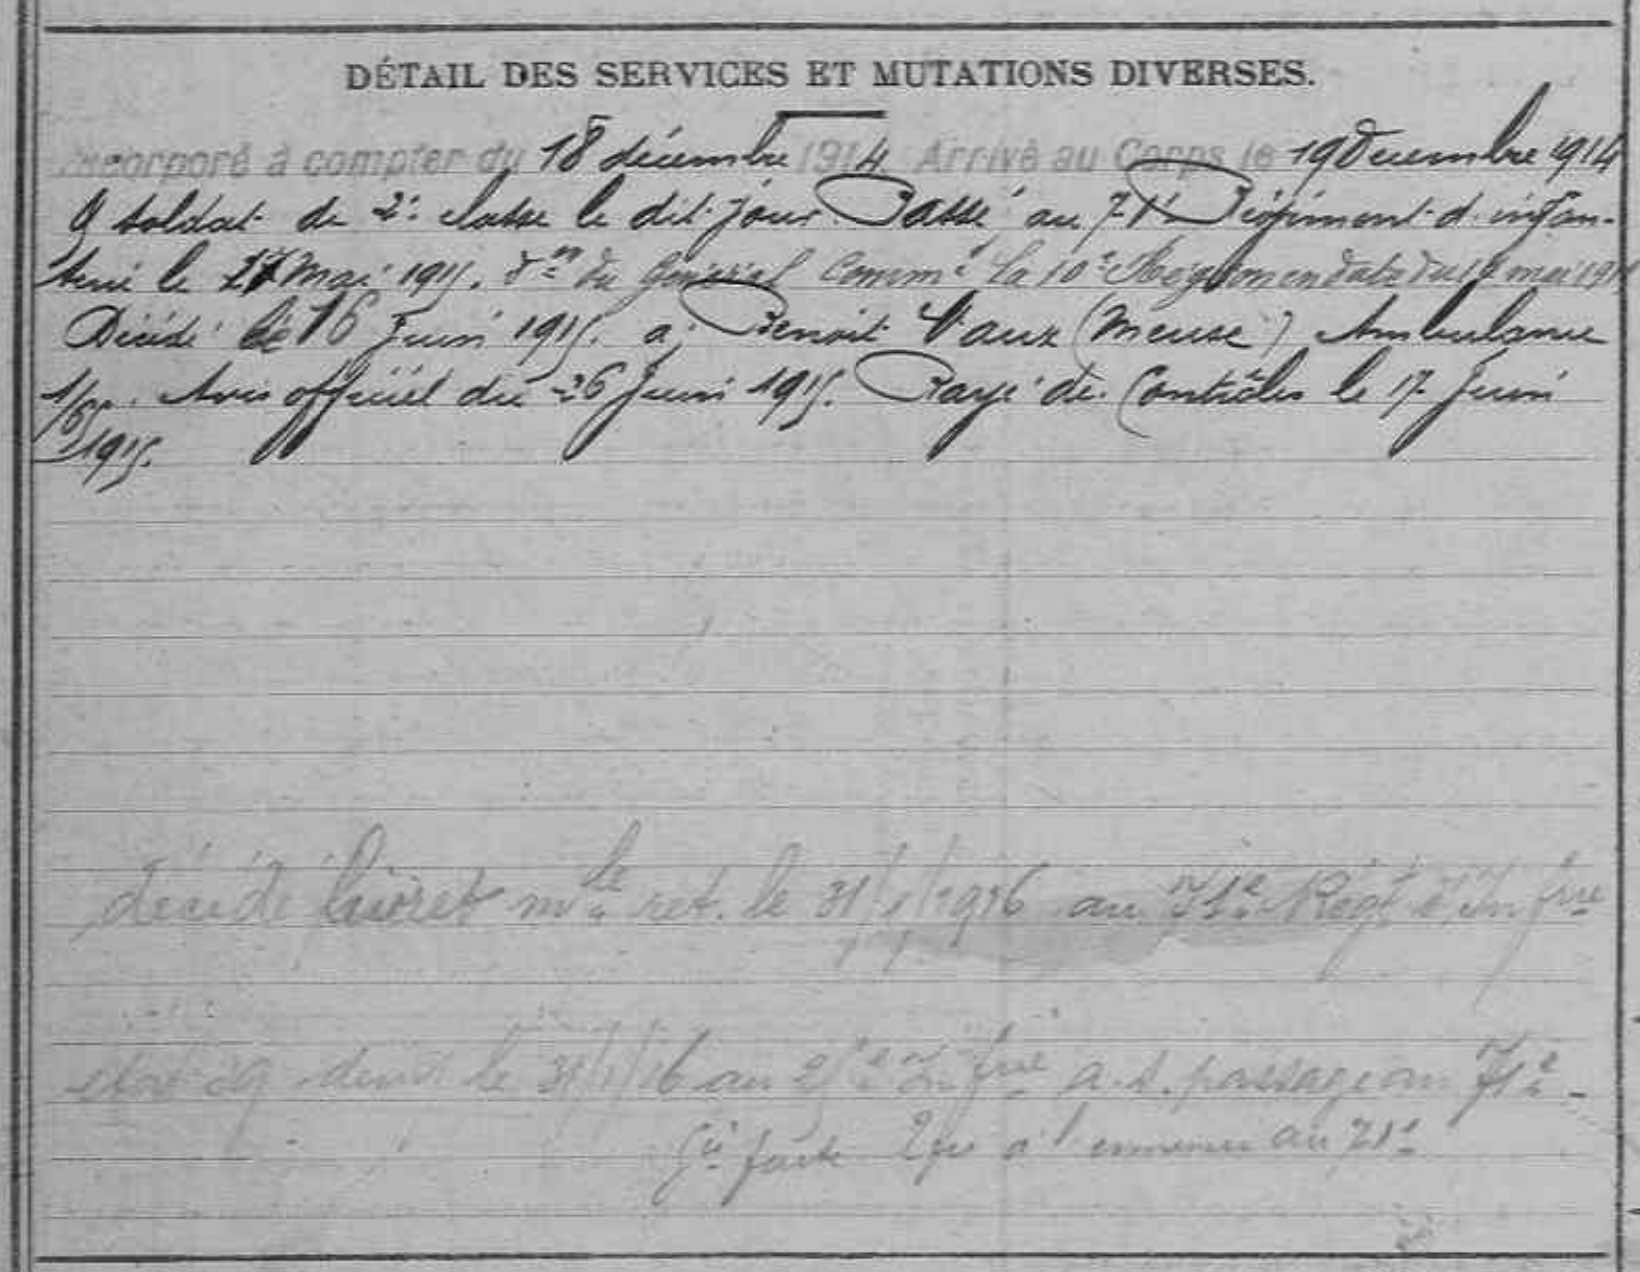 DÉTAIL DES SERVICES ET MUTATIONS DIVERSES.
Incorporé à compter du 18 décembre 1914 Arrivé au Corps le 19 Decembre 1914
soldat de 2e classe le dit jour Passé au 71e Régiment d'infan-
terie le 27 Mai 1915. Don du Général Commt la 10e Région en date du mai 191
Décédé le 16 Juin 1915. à Benoit Vaux (Meuse) Ambulance
1/61. Avis officiel du 26 Juin 1915. Rayé des Contrôles le 17 Juin
1915.
décédé livret mle ret. le 31/1/1916 au 71e Régt d'infrie
le 31/1/16 au infrie a.s. passage au 71e -
au 71e